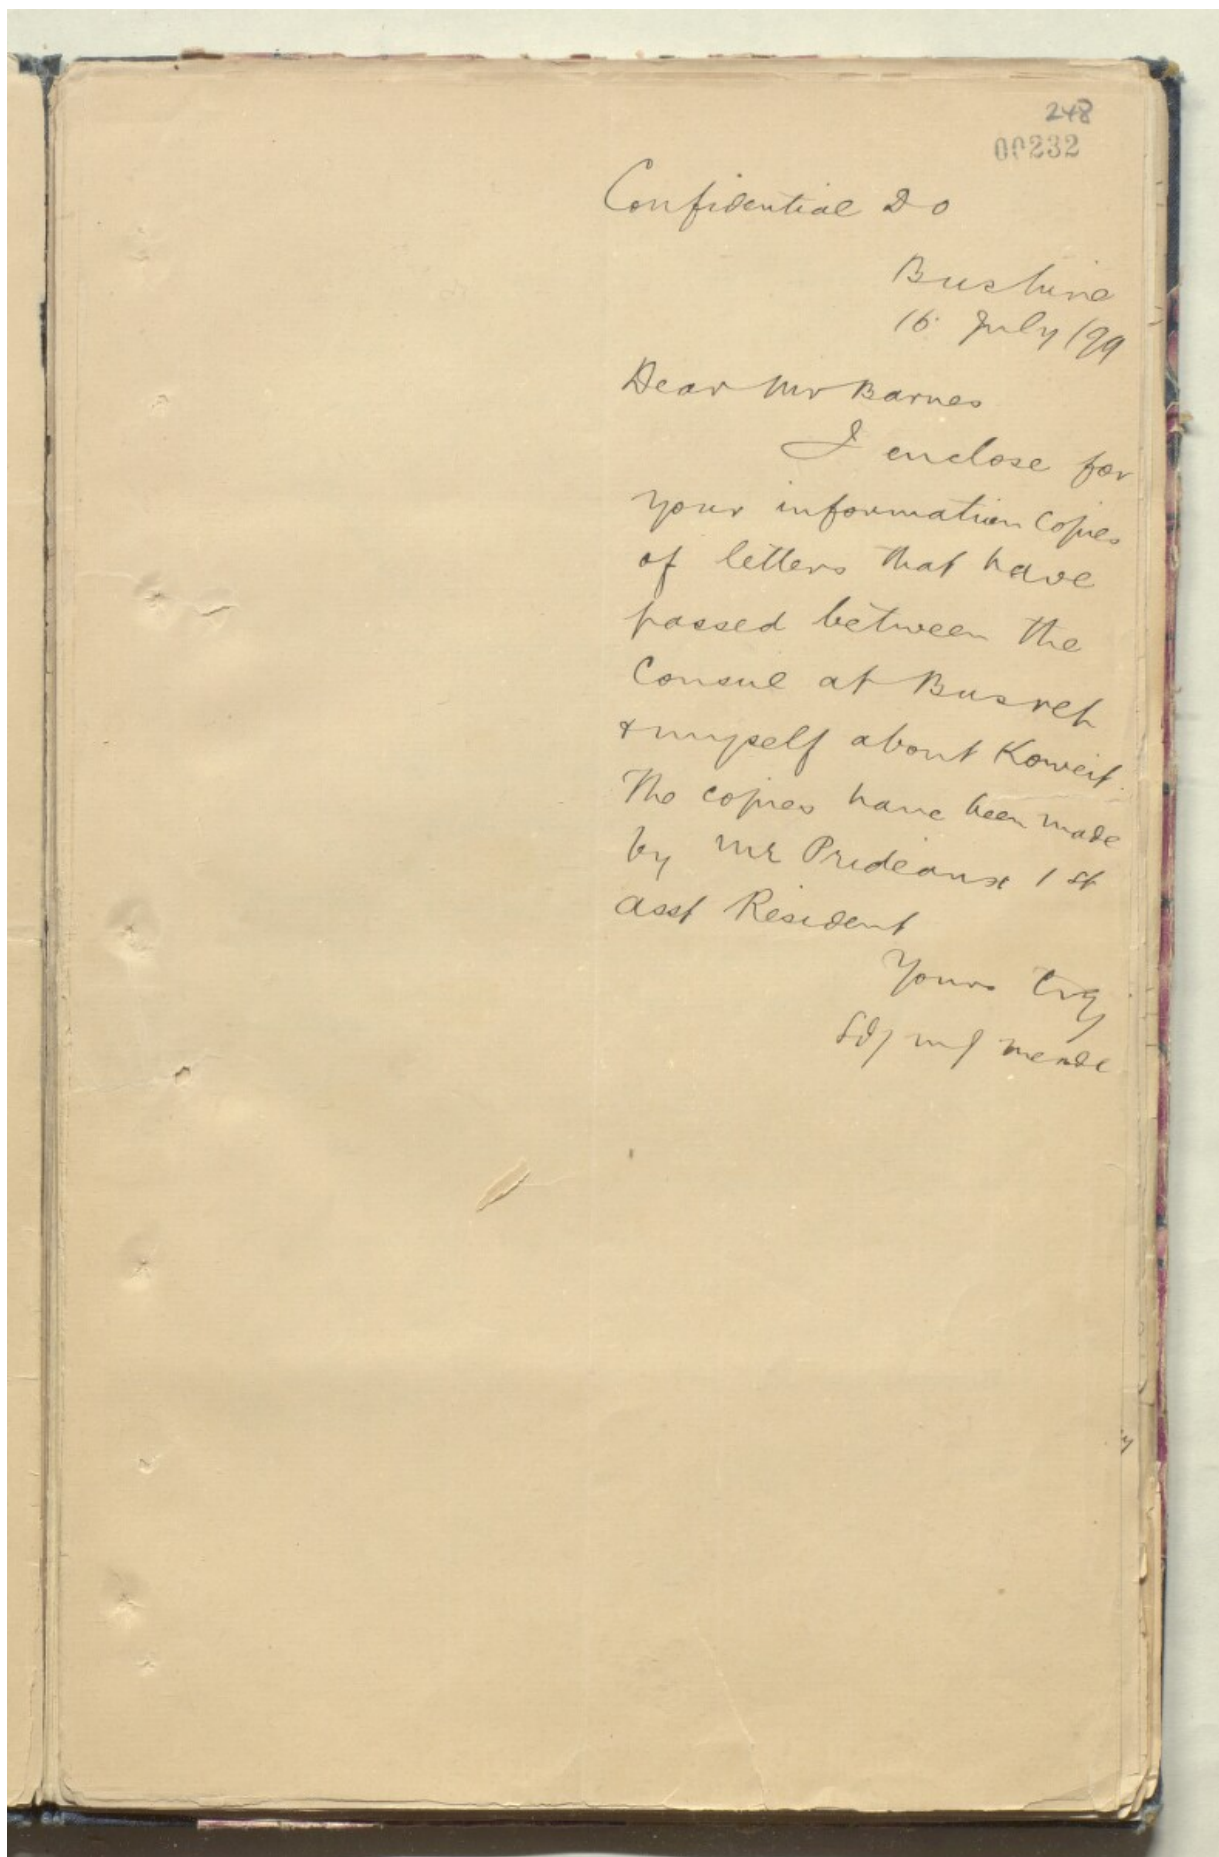 248
00232
Confidential Do
Bushire
16 July /99
Dear Mr Barnes
I enclose for
your information copies
of letters that have
passed between the
Consul at Busreh
& myself about Koweit.
The copies have been made
by Mr Prideaux 1st
Asst Resident
Yours try
Sd/ M J Meade